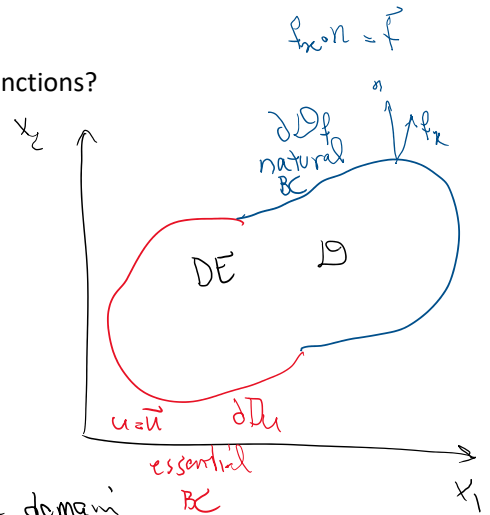 fₓ·n = f̄
nctions?
x₂
n
fₓ
∂𝒟f
natural
BC
DE
𝒟
u = ū
∂𝒟u
essential
BC
x₁
domain